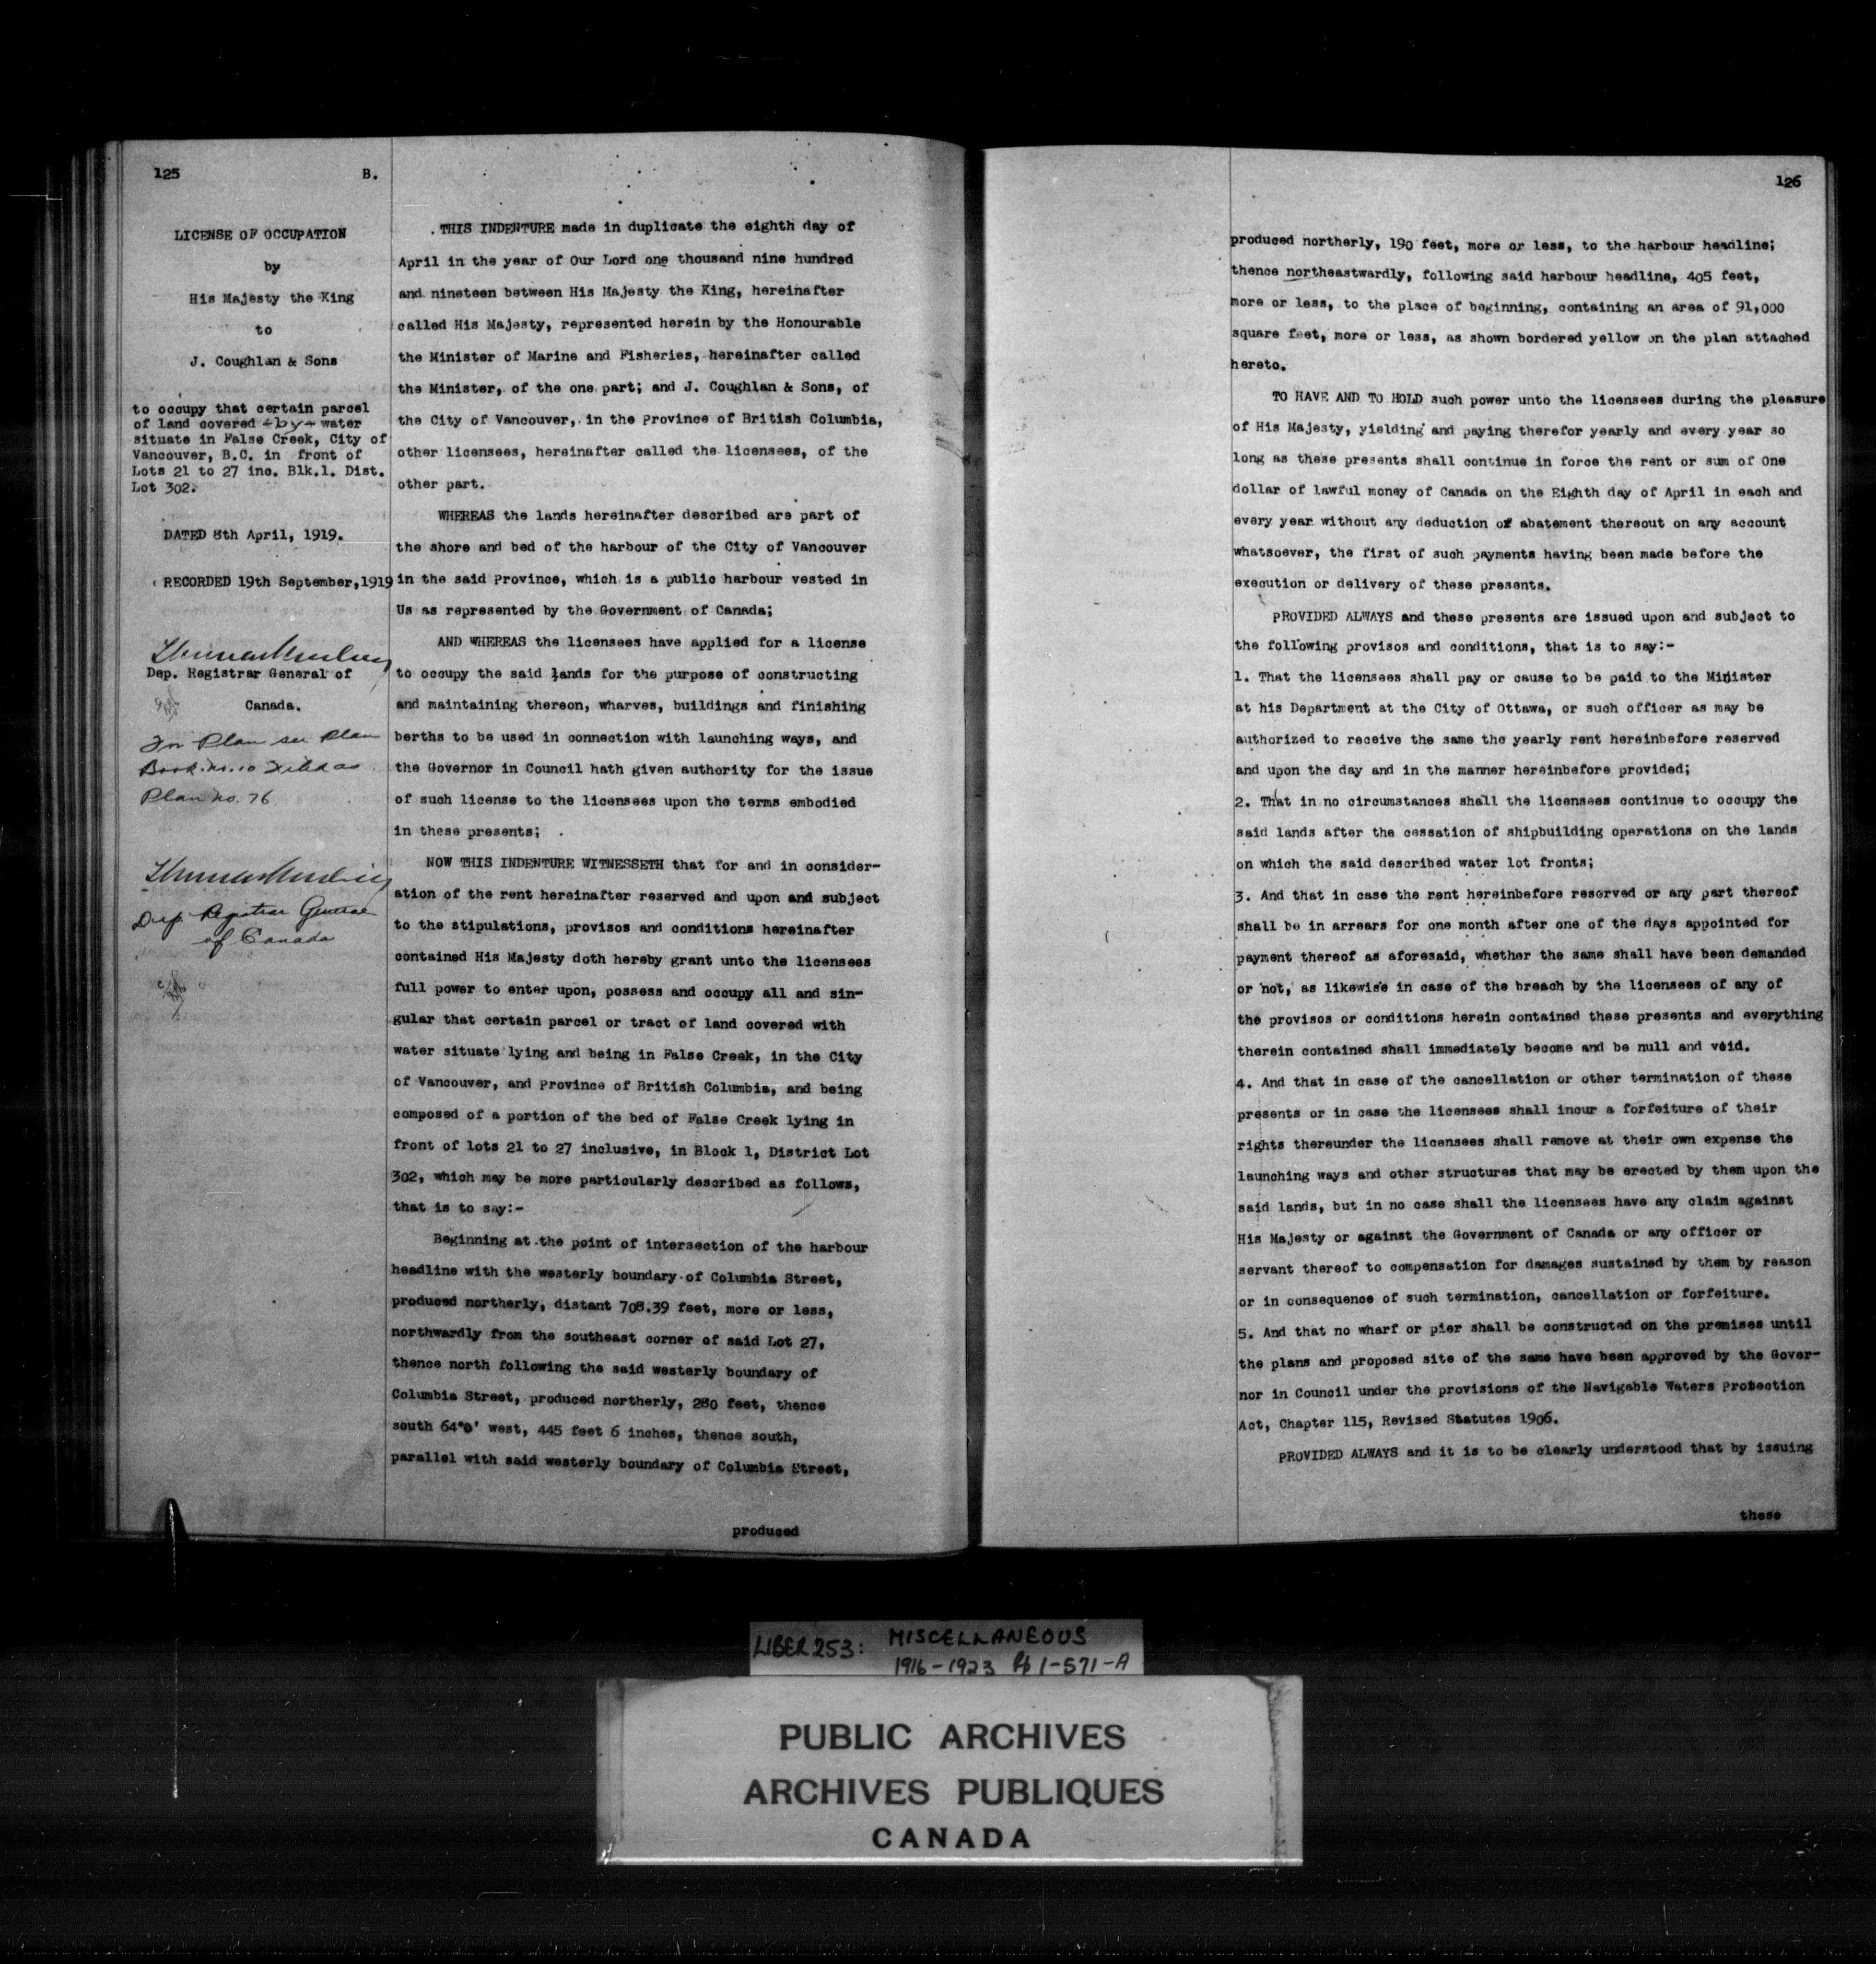 125
B.
LICENSE OF OCCUPATION
by
His Majesty the King
to
J. Coughlan & Sons
to occupy that certain parcel
of land covered by water
situate in False Creek, City of
Vancouver, B.C. in front of
Lots 21 to 27 inc. Blk.1. Dist.
Lot 302.
DATED 8th April, 1919.
RECORDED 19th September,1919
Dep. Registrar General of
Canada.
For Plan see Plan
Book. no. 10 Filed as
Plan no. 76
Dep. Registrar General
of Canada
THIS INDENTURE made in duplicate the eighth day of
April in the year of Our Lord one thousand nine hundred
and nineteen between His Majesty the King, hereinafter
called His Majesty, represented herein by the Honourable
the Minister of Marine and Fisheries, hereinafter called
the Minister, of the one part; and J. Coughlan & Sons, of
the City of Vancouver, in the Province of British Columbia,
other licensees, hereinafter called the licensees, of the
other part.
WHEREAS the lands hereinafter described are part of
the shore and bed of the harbour of the City of Vancouver
in the said Province, which is a public harbour vested in
Us as represented by the Government of Canada;
AND WHEREAS the licensees have applied for a license
to occupy the said lands for the purpose of constructing
and maintaining thereon, wharves, buildings and finishing
berths to be used in connection with launching ways, and
the Governor in Council hath given authority for the issue
of such license to the licensees upon the terms embodied
in these presents;
NOW THIS INDENTURE WITNESSETH that for and in consider-
ation of the rent hereinafter reserved and upon and subject
to the stipulations, provisos and conditions hereinafter
contained His Majesty doth hereby grant unto the licensees
full power to enter upon, possess and occupy all and sin-
gular that certain parcel or tract of land covered with
water situate lying and being in False Creek, in the City
of Vancouver, and Province of British Columbia, and being
composed of a portion of the bed of False Creek lying in
front of lots 21 to 27 inclusive, in Block 1, District Lot
302, which may be more particularly described as follows,
that is to say:-
Beginning at the point of intersection of the harbour
headline with the westerly boundary of Columbia Street,
produced northerly, distant 708.39 feet, more or less,
northwardly from the southeast corner of said Lot 27,
thence north following the said westerly boundary of
Columbia Street, produced northerly, 280 feet, thence
south 64°0' west, 445 feet 6 inches, thence south,
parallel with said westerly boundary of Columbia Street,
produced
126
produced northerly, 190 feet, more or less, to the harbour headline;
thence northeastwardly, following said harbour headline, 405 feet,
more or less, to the place of beginning, containing an area of 91,000
square feet, more or less, as shown bordered yellow on the plan attached
hereto.
TO HAVE AND TO HOLD such power unto the licensees during the pleasure
of His Majesty, yielding and paying therefor yearly and every year so
long as these presents shall continue in force the rent or sum of One
dollar of lawful money of Canada on the Eighth day of April in each and
every year without any deduction of abatement thereout on any account
whatsoever, the first of such payments having been made before the
execution or delivery of these presents.
PROVIDED ALWAYS and these presents are issued upon and subject to
the following provisos and conditions, that is to say:-
1. That the licensees shall pay or cause to be paid to the Minister
at his Department at the City of Ottawa, or such officer as may be
authorized to receive the same the yearly rent hereinbefore reserved
and upon the day and in the manner hereinbefore provided;
2. That in no circumstances shall the licensees continue to occupy the
said lands after the cessation of shipbuilding operations on the lands
on which the said described water lot fronts;
3. And that in case the rent hereinbefore reserved or any part thereof
shall be in arrears for one month after one of the days appointed for
payment thereof as aforesaid, whether the same shall have been demanded
or not, as likewise in case of the breach by the licensees of any of
the provisos or conditions herein contained these presents and everything
therein contained shall immediately become and be null and void.
4. And that in case of the cancellation or other termination of these
presents or in case the licensees shall incur a forfeiture of their
rights thereunder the licensees shall remove at their own expense the
launching ways and other structures that may be erected by them upon the
said lands, but in no case shall the licensees have any claim against
His Majesty or against the Government of Canada or any officer or
servant thereof to compensation for damages sustained by them by reason
or in consequence of such termination, cancellation or forfeiture.
5. And that no wharf or pier shall be constructed on the premises until
the plans and proposed site of the same have been approved by the Gover-
nor in Council under the provisions of the Navigable Waters Protection
Act, Chapter 115, Revised Statutes 1906.
PROVIDED ALWAYS and it is to be clearly understood that by issuing
these
LIBER 253: MISCELLANEOUS
1916-1923 Pp 1-571-A
PUBLIC ARCHIVES
ARCHIVES PUBLIQUES
CANADA